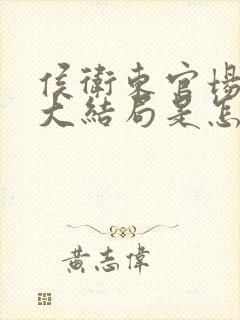 侯衛東官場
大結局是怎
黃志偉